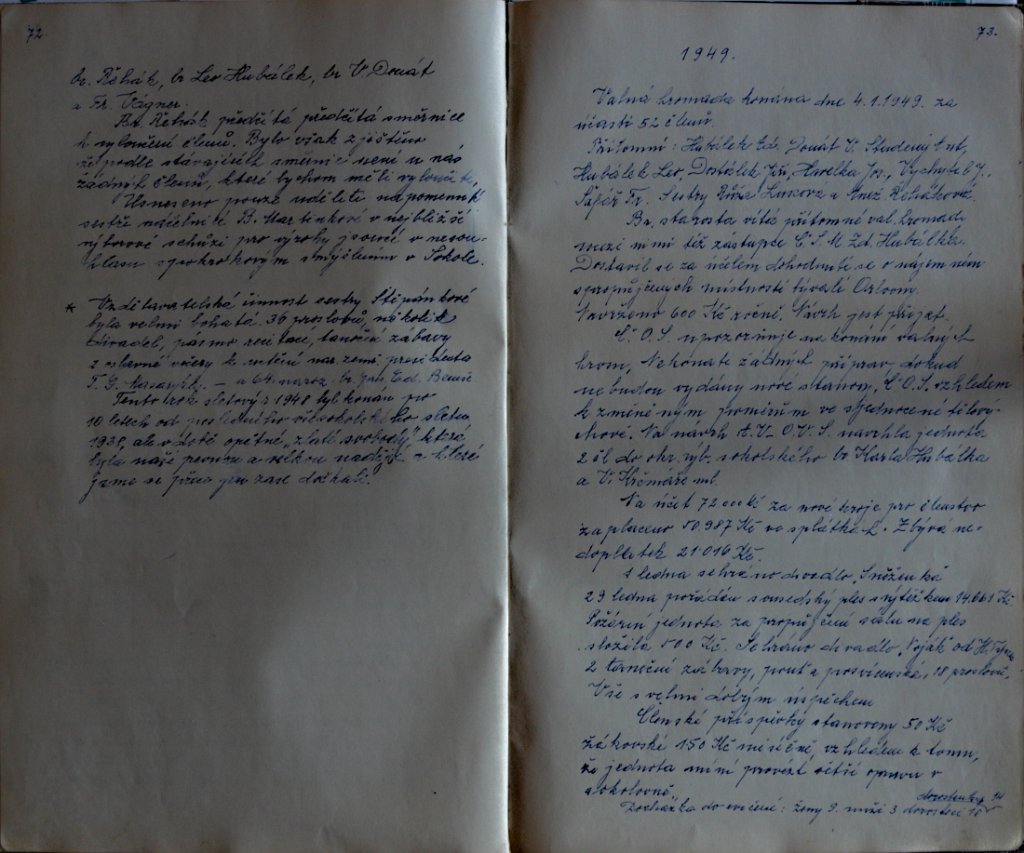 72
br. Řehák, br Lev Hubálek, br V. Donát
a Fr. Vágner.
Br. Řehák předčítá směrnice
k vyloučení členů. Bylo však zjištěno
že podle stávajících směrnic není u nás
žádných členů, které bychom měli vyloučit,
Usneseno pouze uděliti napomenutí
sestře náčelnici B. Martinkové v nejbližší
výborové schůzi pro výroky jsoucí v nesou-
hlasu s pokrokovým smýšlením v Sokole.
* Vzdělavatelská činnost sestry Štěpánkové
byla velmi bohatá. 36 proslovů, několik
divadel, pásmo recitací, taneční zábavy
z oslavné večery k uctění naroz. presidenta
T. G. Masaryka, – a 64. naroz. br. pres. Ed. Beneše
Tento rok sletový 1948 byl konán po
10 letech od posledního všesokolského sletu
1938, ale v době opětné „zlaté svobody", která
byla naší pevnou a velkou nadějí – a které
jsme se již
73.
1949.
Valná hromada konána dne 4.1.1949. za
účasti 52 členů.
Přítomni: Hubálek Ed. Donát V. Studený Ant,
Hubálek Lev, Dostálek Jiří, Havelka Jos., Vychytil J.,
Fr. Sestry Růža a Anež. Řeháková.
Br. starosta vítá přítomné val. hromadě
mezi nimi též zástupce Č.S.M. Zd. Hubálka.
Dostavil se za účelem dohodnutí se o nájemném
z propůjčených místností bývalí Orlovny.
Navrženo 600 Kč ročně. Návrh jest přijat.
Č.O.S. upozorňuje na konání valných
hrom, Nekonate žádných příprav, dokud
nebudou vydány nové stanovy, Č.O.S. vzhledem
k změněným poměrům ve sjednocené tělový-
chově. Na návrh A.V. O.V.S. navrhla jednota
2 čl. do okr. výb. sokolského br Karla Hubálka
a V. Krčmáře ml.
Na účet 72 000 Kč za nové kroje pro členstvo
zaplaceno 50.987 Kč ve splátkách. Zbývá ne-
doplatek 21.016 Kč.
ledna sehráno divadlo „Sněženka
29 ledna pořádán sousedský ples s výtěžkem 14.661 Kč
Požární jednota za propůjčení sálu na ples
složila 500 Kč. Sehráno divadlo „Voják" od
2 taneční zábavy, pouť a posvícenská, 18 proslovů.
Vše s velmi dobrým úspěchem
Členské příspěvky stanoveny 50 Kč
žákovské 150 Kč měsíčně, vzhledem k tomu,
že jednota míní provésti větší opravu v
sokolovně.
dorostenky 14
Docházka do cvičení: ženy 9. muži 3 dorostenci 10